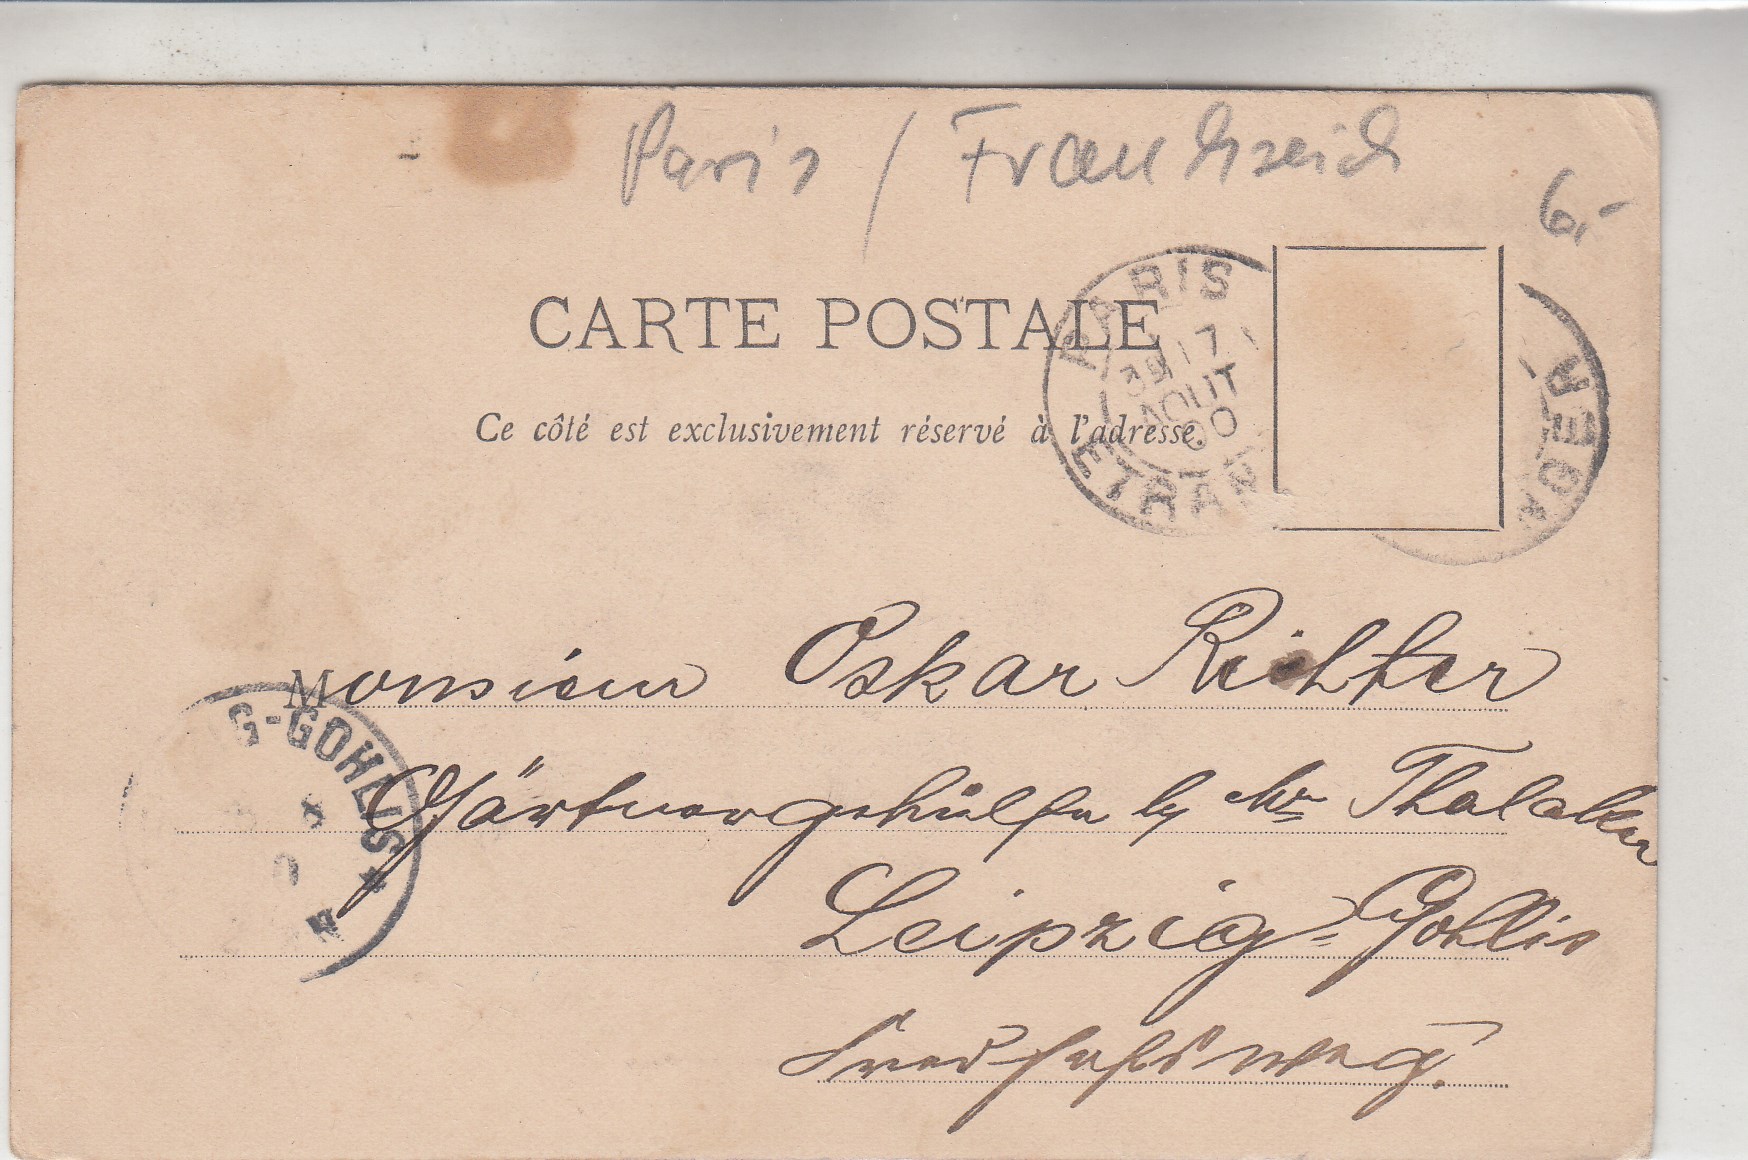 Paris / Frankreich
6.-
CARTE POSTALE
Ce côté est exclusivement réservé à l'adresse.
PARIS
3E 17
AOUT
00
ETRANGER
Monsieur Oskar Richter
Gärtnergehülfe by Mr
Leipzig-Gohlis
G-GOHLIS *